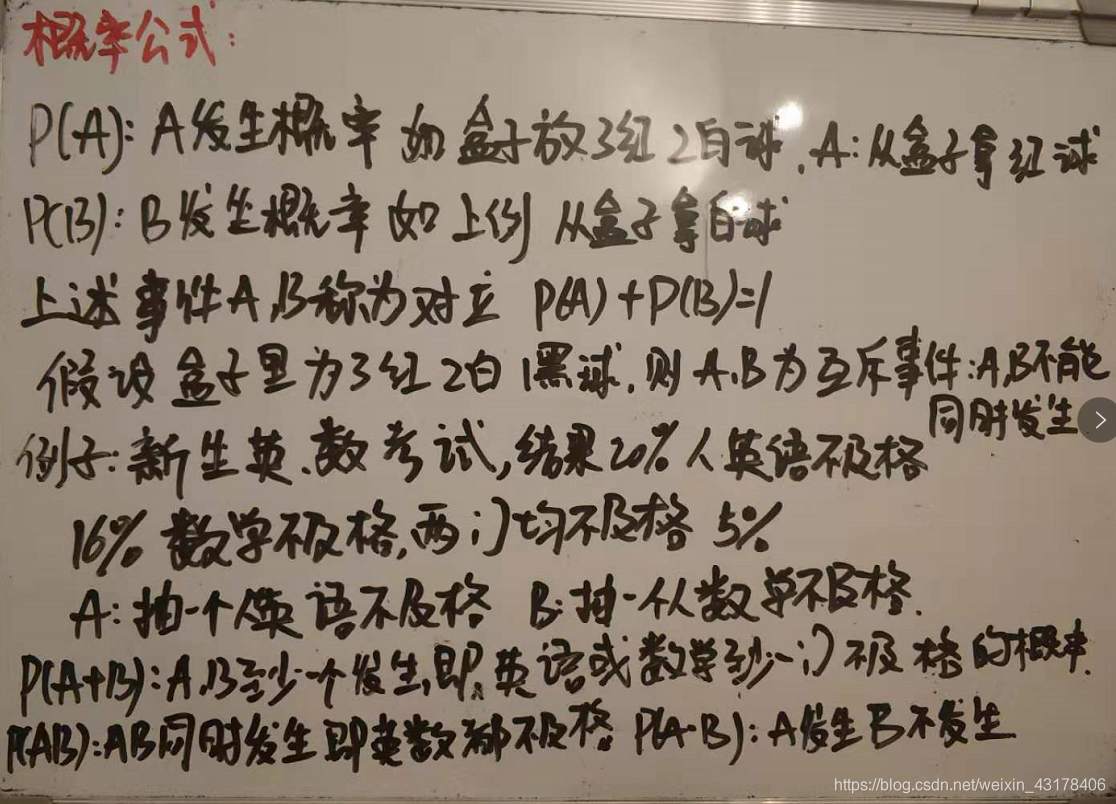 概率公式:
P(A): A发生概率 如 盒子放3红2白球, A: 从盒子拿红球
P(B): B发生概率 如上例 从盒子拿白球
上述事件A,B称为对立 P(A)+P(B)=1
假设盒子里为3红2白1黑球, 则A.B为互斥事件: A,B不能
同时发生
例子: 新生英、数考试, 结果20%人英语不及格
16%数学不及格, 两门均不及格 5%
A: 抽一个人英语不及格 B: 抽一个人数学不及格.
P(A+B): A,B至少一个发生, 即英语或数学至少一门不及格的概率.
P(AB): AB同时发生 即英数都不及格. P(A-B): A发生B不发生
https://blog.csdn.net/weixin_43178406